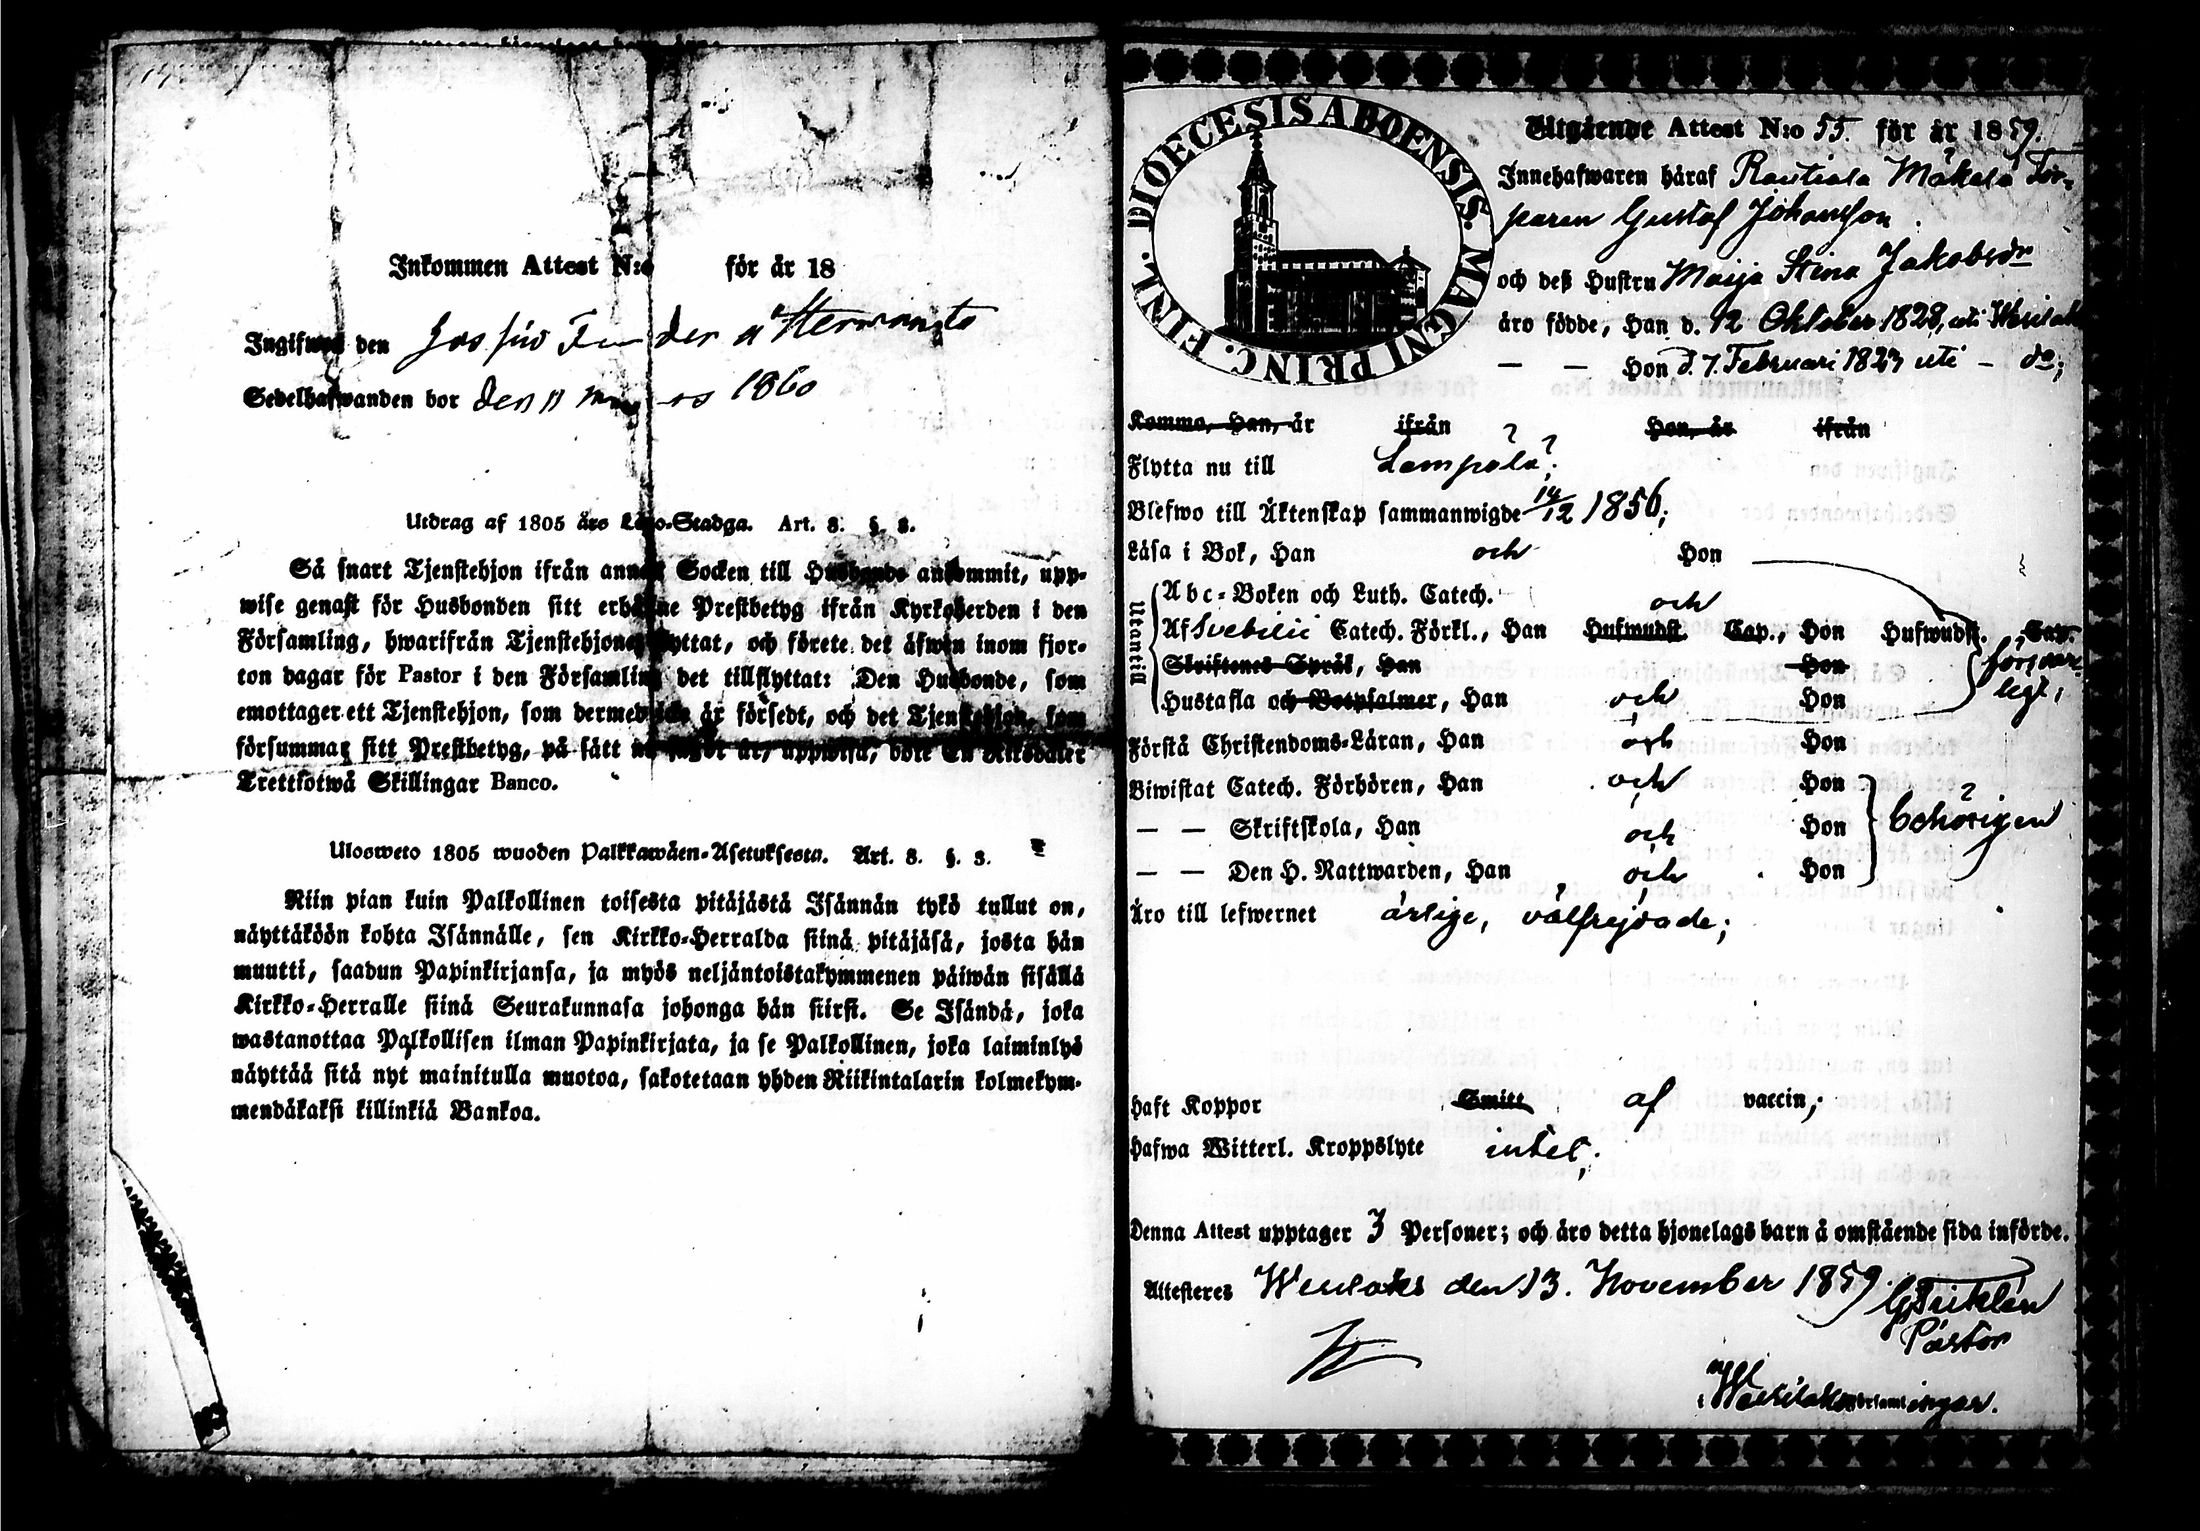 Inkommen Attest N:o för år 18
Ingifwen den
Sedelhafwanden bor den 11 1860
Utdrag af 1805 års Lego-Stadga. Art. 8. §. 8.
Så snart Tjenstehjon ifrån annan Socken till Husbonde ankommit, upp-
wise genast för Husbonden sitt erhållne Prestbetyg ifrån Kyrkoherden i den
Församling, hwarifrån Tjenstehjonet flyttat, och förete det äfwen inom fjor-
ton dagar för Pastor i den Församling det tillflyttat: Den Husbonde, som
emottager ett Tjenstehjon, som dermed icke är försedt, och det Tjenstehjon, som
försummar sitt Prestbetyg, på sätt nu sagdt är, uppwisa, böte En Riksdaler
Trettiotwå Skillingar Banco.
Ulosweto 1805 wuoden Palkkawäen-Asetuksesta. Art. 8. §. 8.
Niin pian kuin Palkollinen toisesta pitäjästä Isännän tykö tullut on,
näyttäköön kohta Isännälle, sen Kirkko-Herralda siinä pitäjäsä, josta hän
muutti, saadun Papinkirjansa, ja myös neljäntoistakymmenen päiwän sisällä
Kirkko-Herralle siinä Seurakunnasa johonga hän siirsi. Se Isändä, joka
wastanottaa Palkollisen ilman Papinkirjata, ja se Palkollinen, joka laiminlyö
näyttää sitä nyt mainitulla muotoa, sakotetaan yhden Riikintalarin kolmekym-
mendäkaksi killinkiä Bankoa.
DIOECESIS ABOENSIS. MAGNI PRINC. FINL.
Utgående Attest N:o 55. för år 1859.
Innehafwaren häraf Rautiala Mäkelä Tor-
paren Gustaf Johansson
och deß Hustru Maija Stina Jakobsdr
äro födde, Han d. 12 Oktober 1828, uti Wesilaks
— — Hon d. 7. Februari 1823 uti - do;
Kommo, Han, år ifrån Hon, år ifrån
Flytta nu till Lempälä;
Blefwo till Äktenskap sammanwigde 14/12 1856;
Läsa i Bok, Han och Hon
Utantill
Abc-Boken och Luth. Catech. och
Af Svebilii Catech. Förkl., Han Hufwudst. Cap., Hon Hufwudst. Cap.
Skriftenes Språk, Han Hon
försvar-
ligt;
Hustafla och Botpsalmer, Han och Hon
Förstå Christendoms-Läran, Han och Hon
Biwistat Catech. Förhören, Han och Hon
— — Skriftskola, Han och Hon
behörigen
— — Den H. Nattwarden, Han och Hon
Äro till lefwernet ärlige, välfrejdade;
Haft Koppor Smitt af vaccin;
Hafwa Witterl. Kroppslyte intet;
Denna Attest upptager 3 Personer; och äro detta hjonelags barn å omstående sida införde.
Attesteres Wesilaks den 13. November 1859.
Pastor
i Wesilaks församlingar.